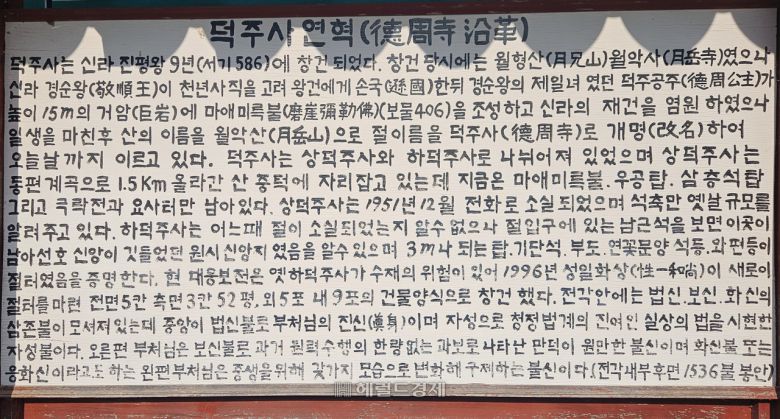 덕주사연혁(德周寺 沿革)
덕주사는 신라 진평왕 9년(서기 586)에 창건 되었다. 창건 당시에는 월형산(月兄山)월악사(月岳寺)였으나
신라 경순왕(敬順王)이 천년사직을 고려 왕건에게 손국(遜國)한뒤 경순왕의 제일녀 였던 덕주공주(德周公主)가
높이 15m의 거암(巨岩)에 마애미륵불(磨崖彌勒佛)(보물406)을 조성하고 신라의 재건을 염원 하였으나
일생을 마친후 산의 이름을 월악산(月岳山)으로 절이름을 덕주사(德周寺)로 개명(改名)하여
오늘날 까지 이르고 있다. 덕주사는 상덕주사와 하덕주사로 나뉘어져 있었으며 상덕주사는
동편계곡으로 1.5Km 올라간 산 중턱에 자리잡고 있는데 지금은 마애미륵불.우공탑.삼층석탑
그리고 극락전과 요사터만 남아있다. 상덕주사는 1951년 12월 전화로 소실 되었으며 석축만 옛날 규모를
알려주고 있다. 하덕주사는 어느때 절이 소실되었는지 알수 없으나 절입구에 있는 남근석을 보면 이곳이
남아선호 신앙이 깃들었던 원시신앙지 였음을 알수있으며 3m나 되는 탑.기단석.부도.연꽃문양 석등.와편등이
절터였음을 증명한다. 현 대웅보전은 옛하덕주사가 수재의 위험이 있어 1996년 성일화상(性一和尙)이 새로이
절터를 마련 전면5칸 측면3칸 52평, 외5포 내9포의 건물양식으로 창건 했다. 전각안에는 법신.보신.화신의
삼존불이 모셔져있는데 중앙이 법신불로 부처님의 진신(眞身)이며 자성으로 청정법계의 진여인 실상의 법을 시현한
자성불이다. 오른편 부처님은 보신불로 과거 원력수행의 한량없는 과보로 나타난 만덕이 원만한 불신이며 화신불 또는
응화신이라고도 하는 왼편부처님은 중생을위해 갖가지 모습으로 변화해 구제하는 불신이다(전각내부후면 1536불 봉안)
헤럴드경제